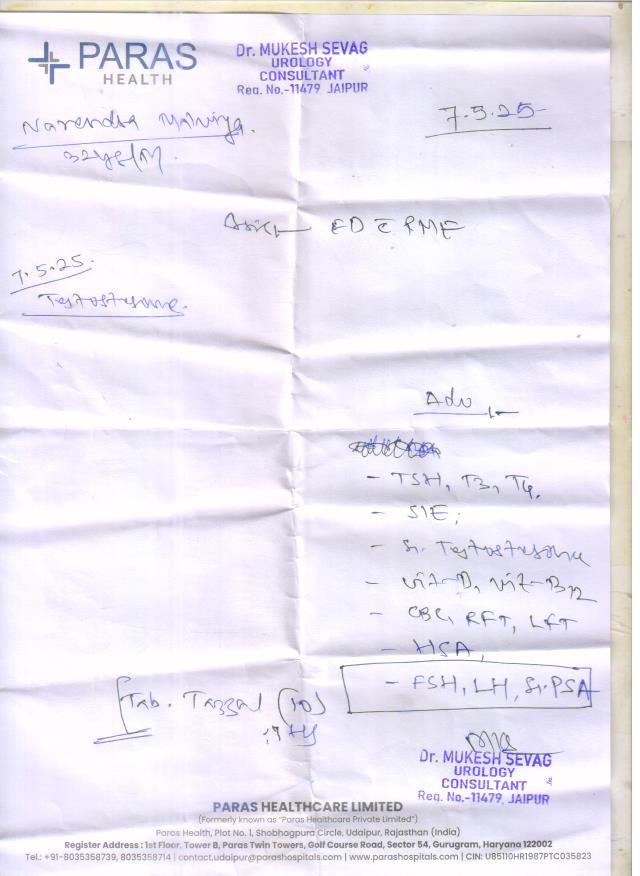 PARAS
HEALTH
Dr. MUKESH SEVAG
UROLOGY
CONSULTANT
Reg. No.-11479 JAIPUR
7.5.25
Narendra Malviya.
32yr/M.
ED c PME
7.5.25.
Testosterone.
Adv
- TSH, T3, T4,
- SIE;
- Sr. Testosterone
- vit-D, vit-B12
- CBC, RFT, LFT
- HSA,
- FSH, LH, Sr. PSA
Tab. Tazzal (10)
Dr. MUKESH SEVAG
UROLOGY
CONSULTANT
Reg. No.-11479, JAIPUR
PARAS HEALTHCARE LIMITED
(Formerly known as "Paras Healthcare Private Limited")
Paras Health, Plot No. 1, Shobhagpura Circle, Udaipur, Rajasthan (India)
Register Address : 1st Floor, Tower B, Paras Twin Towers, Golf Course Road, Sector 54, Gurugram, Haryana 122002
Tel.: +91-8035358739, 8035358714 | contact.udaipur@parashospitals.com | www.parashospitals.com | CIN: U85110HR1987PTC035823